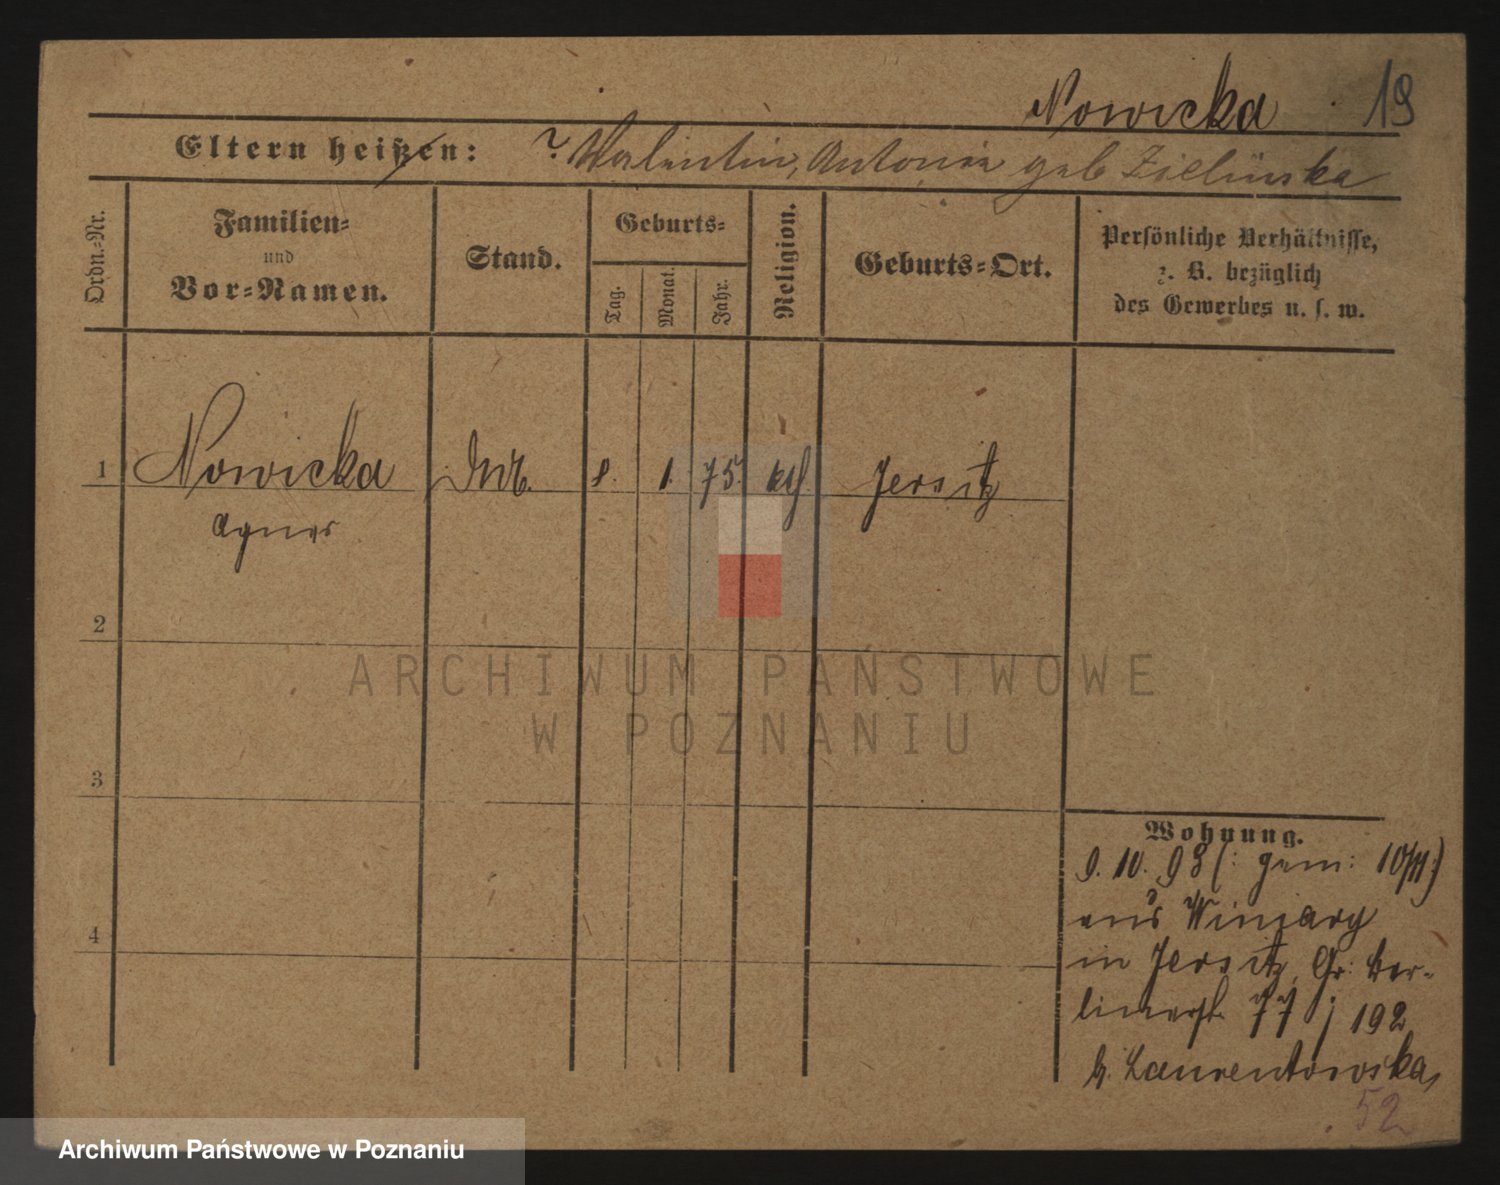 Nowicka 19
Eltern heißen: ? Valentin, Antonie geb Zielinska
Ordn.-Nr.
Familien-
und
Vor-Namen.
Stand.
Geburts-
Tag.
Monat.
Jahr.
Religion.
Geburts-Ort.
Persönliche Verhältnisse,
z. B. bezüglich
des Gewerbes u. s. w.
1 Nowicka 8. 1. 75. kth Jersitz
Agnes
2
ARCHIWUM PAŃSTWOWE
W POZNANIU
3
Wohnung.
9. 10. 98 (: gem: 10/11:)
aus Winiary
in Jersitz, Gr: Ber-
linerst. 77 j 192
b. Laurentowska,
4
52
Archiwum Państwowe w Poznaniu